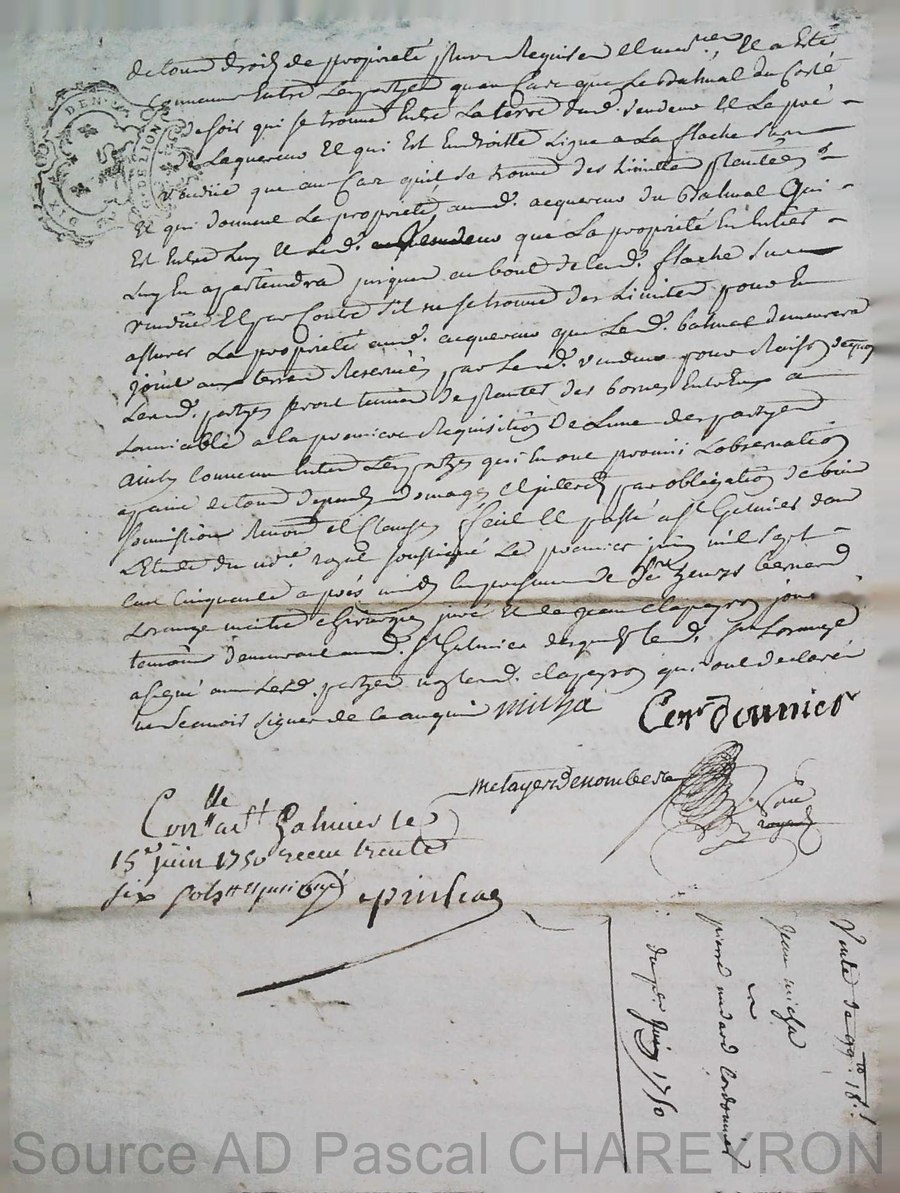 de tous droits de proprieté Requisse Il a Esté
Convenu Entre Les partyes quau Cas que Le Bahual du Costé
de soir qui se trouve Entre La terre dud. vendeur Et La pré
Laquereur Et qui Est En droitte Ligne a La flache Sur
vandue que au Cas quil sa trouve des Limittes plantées
Et qui donnent La proprieté aud. acquereur du Bahual Qui
Est Entre Luy Et Led. vendeur que La proprieté En Entier
Luy En apartiendra jusques au bout de lad. flache Sus
vandüe Et par Contre s'il ne se trouve des Limittes pour En
assurer La proprieté aud. acquereur que Led. bahual demeurera
joint aux terres Reservées par Led. vendeur pour Raison de quoy
Lesd. partyes seront tenues de planter des bornes Entreux a
Lamiable a la premiere Requisition De Lune des partyes
Ainsy Convenu Entre Les partyes qui En ont promis Lobservation
a paine de tous depends domages Et jnterets par obligation de biens
soumissions Renon. et Clauses fait Et passé a St Galmier dans
L'Etude du no.re royal soussigné Le premier juin mil sept
cent Cinquante apres midy En presence de Sr bernard
Lorange maitre Chirurgien juré Et de jean Clapeyron
temoins demeurant aud. St Galmier desquels led. Sr Lorange
a signé avec lesd. partyes non led. Clapeyron qui ont declaré
ne scavoir signer de ce enquis micha Cordonnier
metayer De nombere
royal
Conlle a St Galmier le
15e juin 1750 receu trente
six sols
Vente de 99# 18s
jean micha
a
pierre medard Cordonnier
du per Juin 1750
Source AD Pascal CHAREYRON